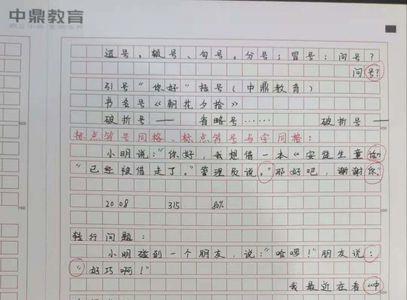 中鼎教育
逗号，顿号、句号。分号；冒号：问号？
问号？
引号“你好”括号（中鼎教育）
书名号《朝花夕拾》
破折号—— 省略号…… 破折号—
标点符号同格 标点符号与字同格：
小明说：“你好，我想借一本《安徒生童话
“已经被借走了。”管理员说。“那好吧，谢谢你。
2008 315 60%
转行问题：
小明碰到一个朋友，说：“哈啰！”朋友说：
“好巧啊！”
我最近在看《中